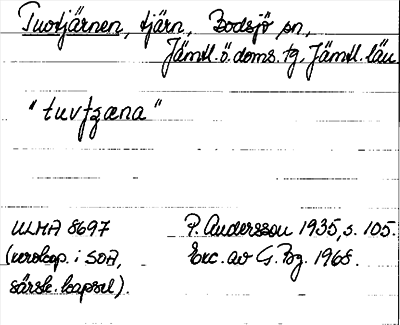 Tuvtjärnen, tjärn, Bodsjö sn,
Jämtl. ö. doms. tg, Jämtl. län
"tuvtʒæna"
ULMA 8697 P. Andersson 1935, s. 105.
(verokop. i SOA, Exc. av G. Bg. 1968.
särsk. kapsel).